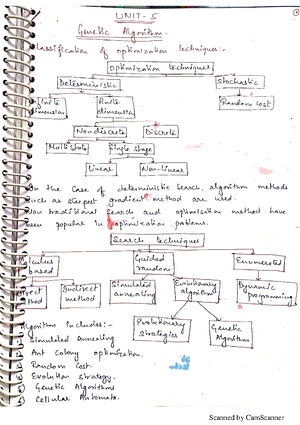 UNIT-5
Genetic Algorithm.
classification of optimization techniques:-
optimization techniques
Deterministic
Stochastic
finite dimension
Random Cost
Nondiscrete
Discrete
Multistate
Single stage
Linear
Non-linear
In the case of deterministic search, algorithm methods
such as steepest gradient method are used.
Non traditional search and optimization method have
been popular in optimization problems.
Search techniques
calculus based
Guided random
Enumerated
Direct method
Indirect method
Simulated annealing
Evolutionary algorithm
Dynamic programming
Evolutionary strategies
Genetic Algorithm
Algorithm includes:-
Simulated Annealing
Ant Colony optimization.
Random Cost.
Evolution strategy.
Genetic Algorithms
Cellular Automata.
Scanned by CamScanner